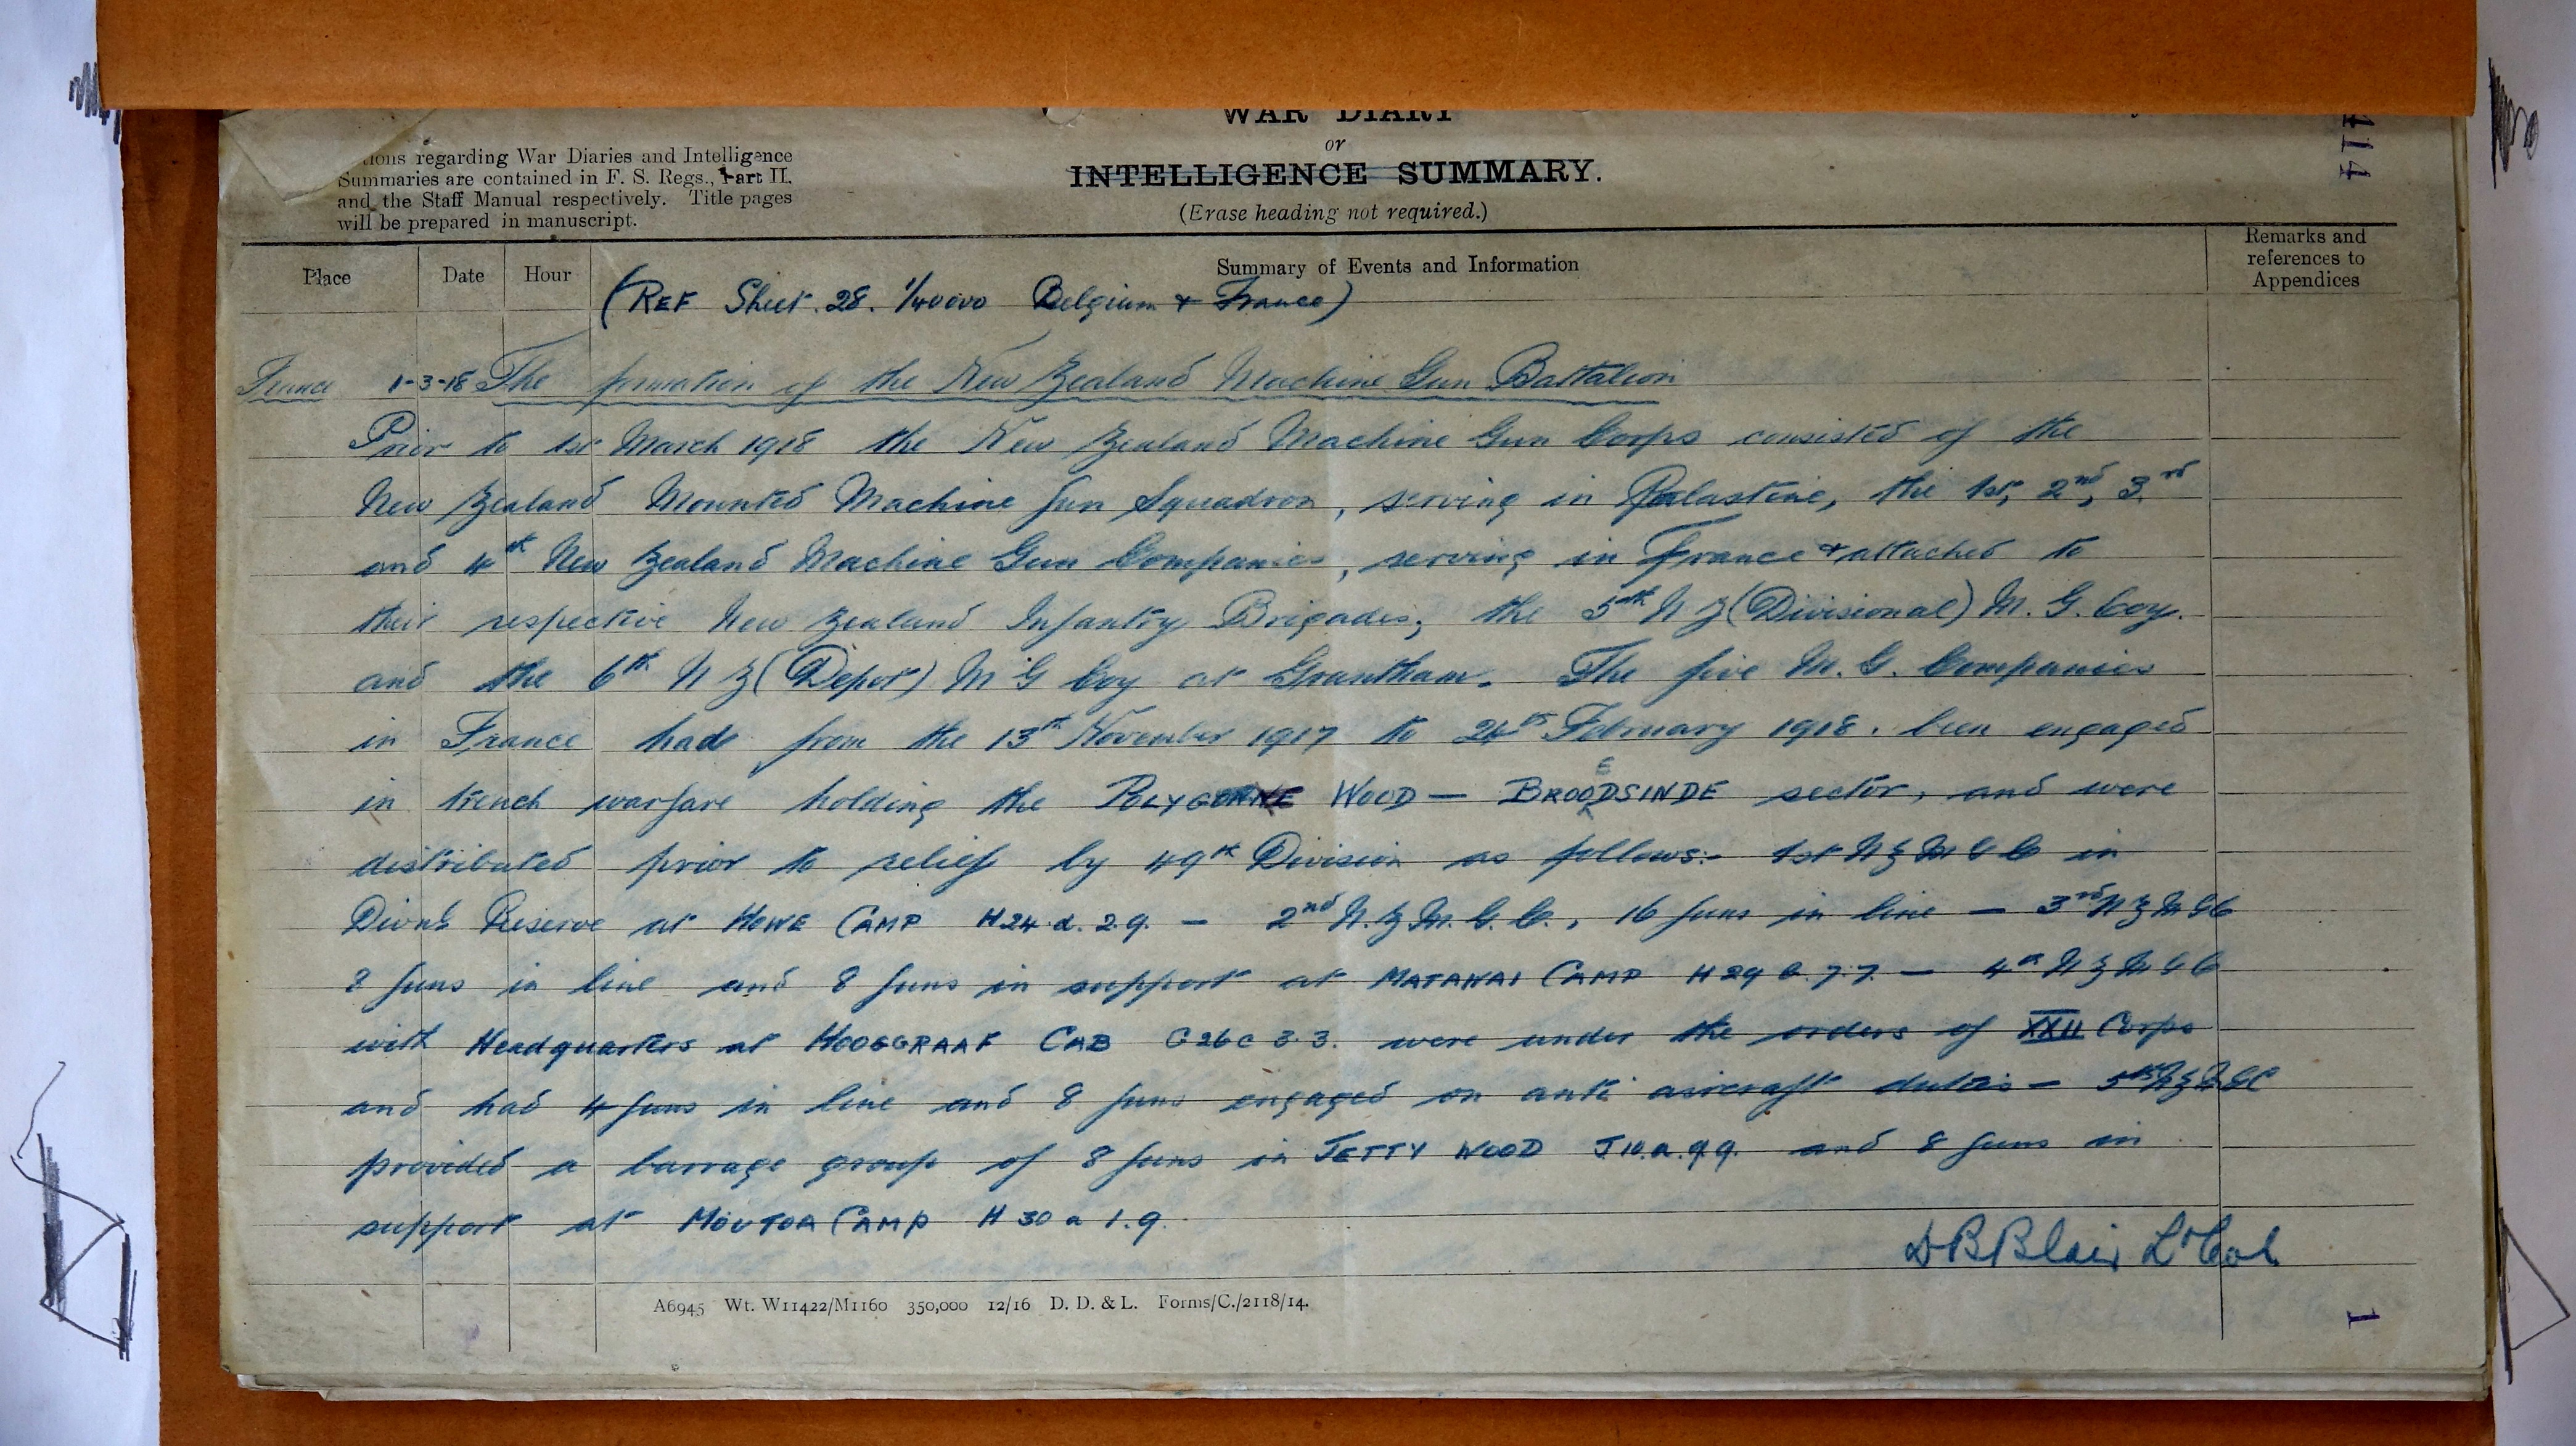 WAR DIARY
or
INTELLIGENCE SUMMARY.
(Erase heading not required.)
tions regarding War Diaries and Intelligence
Summaries are contained in F. S. Regs., Part II.
and the Staff Manual respectively. Title pages
will be prepared in manuscript.
Place Date Hour Summary of Events and Information Remarks and references to Appendices
(REF Sheet. 28. 1/40000 Belgium & France)
France 1-3-18 The formation of the New Zealand Machine Gun Battalion
Prior to 1st March 1918 the New Zealand Machine Gun Corps consisted of the
New Zealand Mounted Machine Gun Squadron, serving in Palastine, the 1st, 2nd, 3rd
and 4th New Zealand Machine Gun Companies, serving in France & attached to
their respective New Zealand Infantry Brigades; the 5th N Z (Divisional) M. G. Coy.
and the 6th N Z (Depot) M G Coy at Grantham. The five M. G. Companies
in France had from the 13th November 1917 to 24th February 1918. been engaged
in trench warfare holding the POLYGONE WOOD — BROODSEINDE sector, and were
distributed prior to relief by 49th Division as follows:- 1st N Z M G C in
Divnl Reserve at HOWE CAMP H24.d.2.9. — 2nd N. Z. M. G. C., 16 guns in line — 3rd N Z M G C
8 guns in line and 8 guns in support at MATAWAI CAMP H 29 b. 7.7. — 4th N Z M G C
with Headquarters at HOOGGRAAF CAB G26c 3.3. were under the orders of XXII Corps
and had 4 guns in line and 8 guns engaged on anti aircraft duties — 5th N Z M G C
provided a barrage group of 8 guns in JETTY WOOD J10.a.9.9. and 8 guns in
support at MOUTOA CAMP H 30 a 1.9.
D B Blair Lt Col
A6945 Wt. W11422/M1160 350,000 12/16 D. D. & L. Forms/C./2118/14.
1